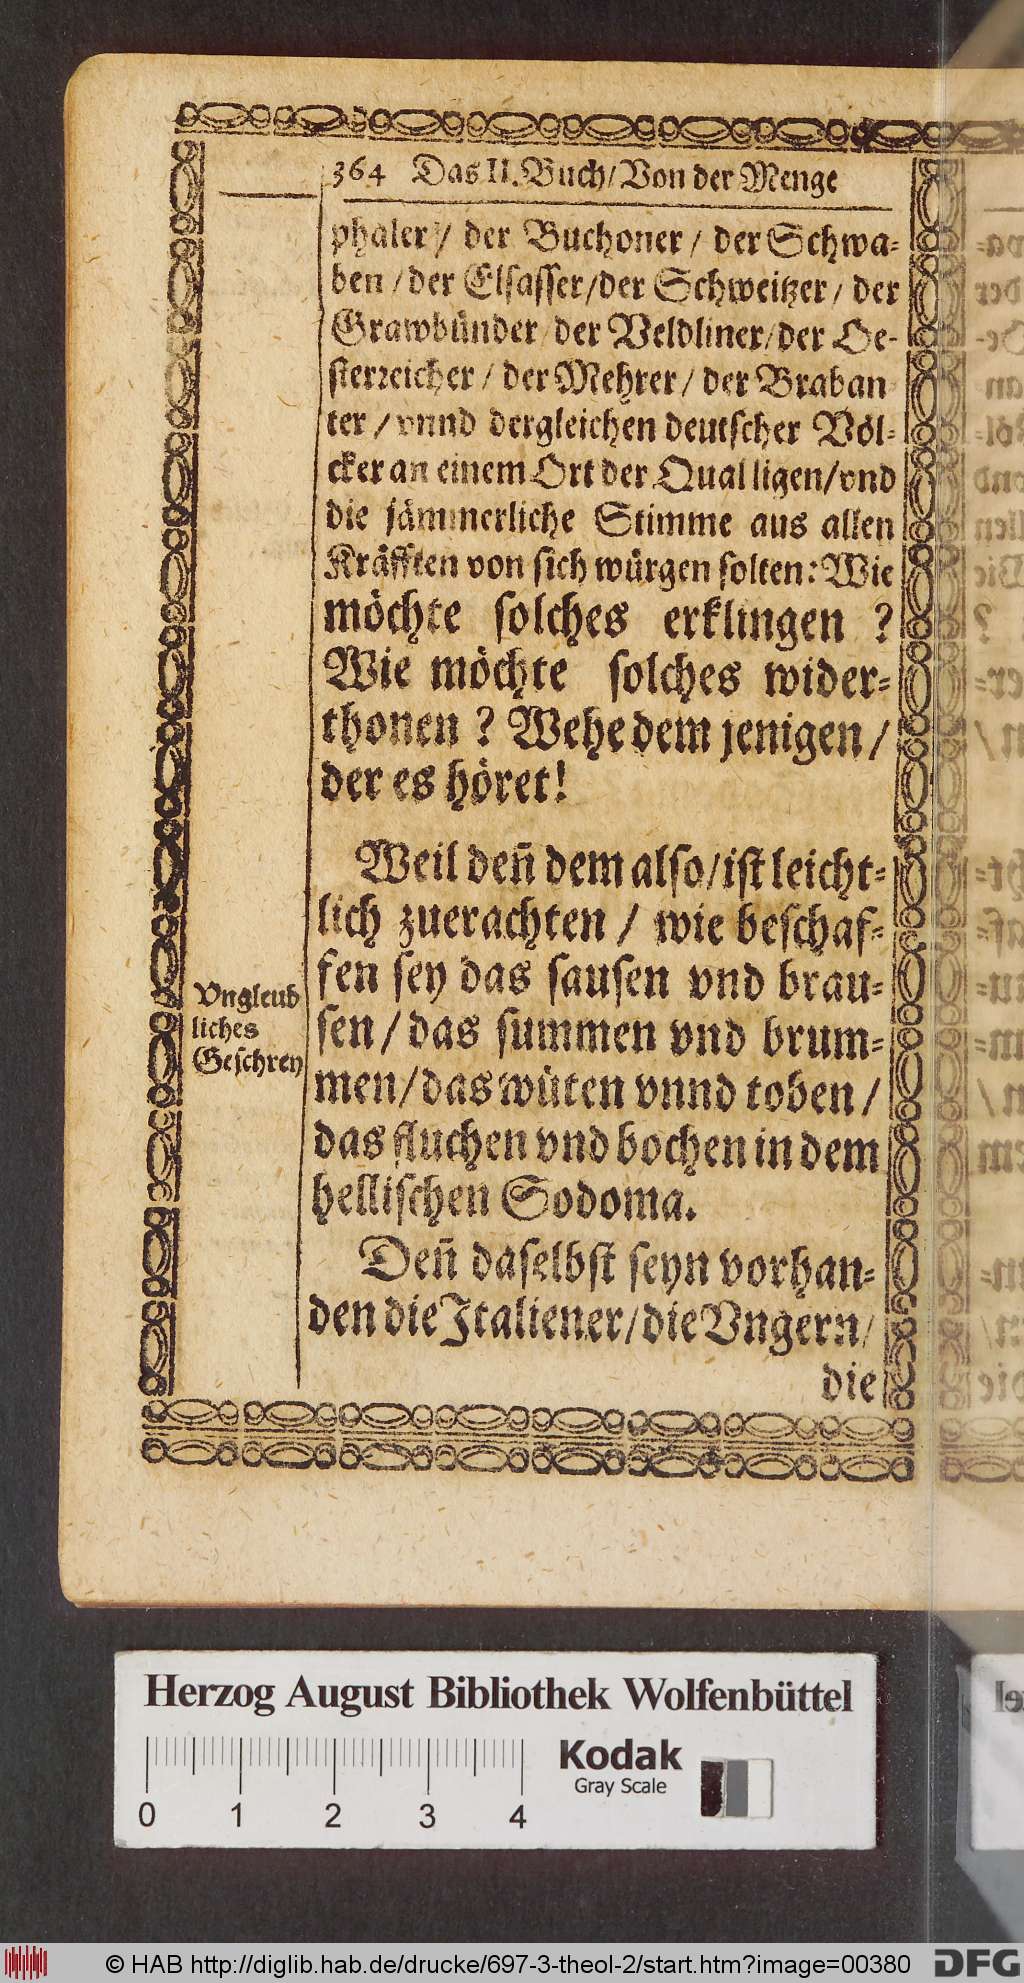 364 Das II. Buch/ Von der Menge
phaler/ der Buchoner / der Schwa-
ben / der Elsasser/der Schweitzer / der
Grawbünder/der Veldliner/der Oe-
sterreicher / der Mehrer / der Braban
ter / vnnd dergleichen deutscher Völ-
cker an einem Ort der Qual ligen/vnd
die jämmerliche Stimme aus allen
Kräfften von sich würgen solten: Wie
möchte solches erklingen ?
Wie möchte solches wider-
thonen ? Wehe dem jenigen /
der es höret!
Weil deñ dem also/ist leicht-
lich zuerachten / wie beschaf-
fen sey das sausen vnd brau-
sen / das summen vnd brum-
men/das wüten vnnd toben /
das fluchen vnd bochen in dem
hellischen Sodoma.
Vngleub
liches
Geschrey
Deñ daselbst seyn vorhan-
den die Italiener/die Vngern/
die
Herzog August Bibliothek Wolfenbüttel
Kodak
Gray Scale
0 1 2 3 4
© HAB http://diglib.hab.de/drucke/697-3-theol-2/start.htm?image=00380
DFG